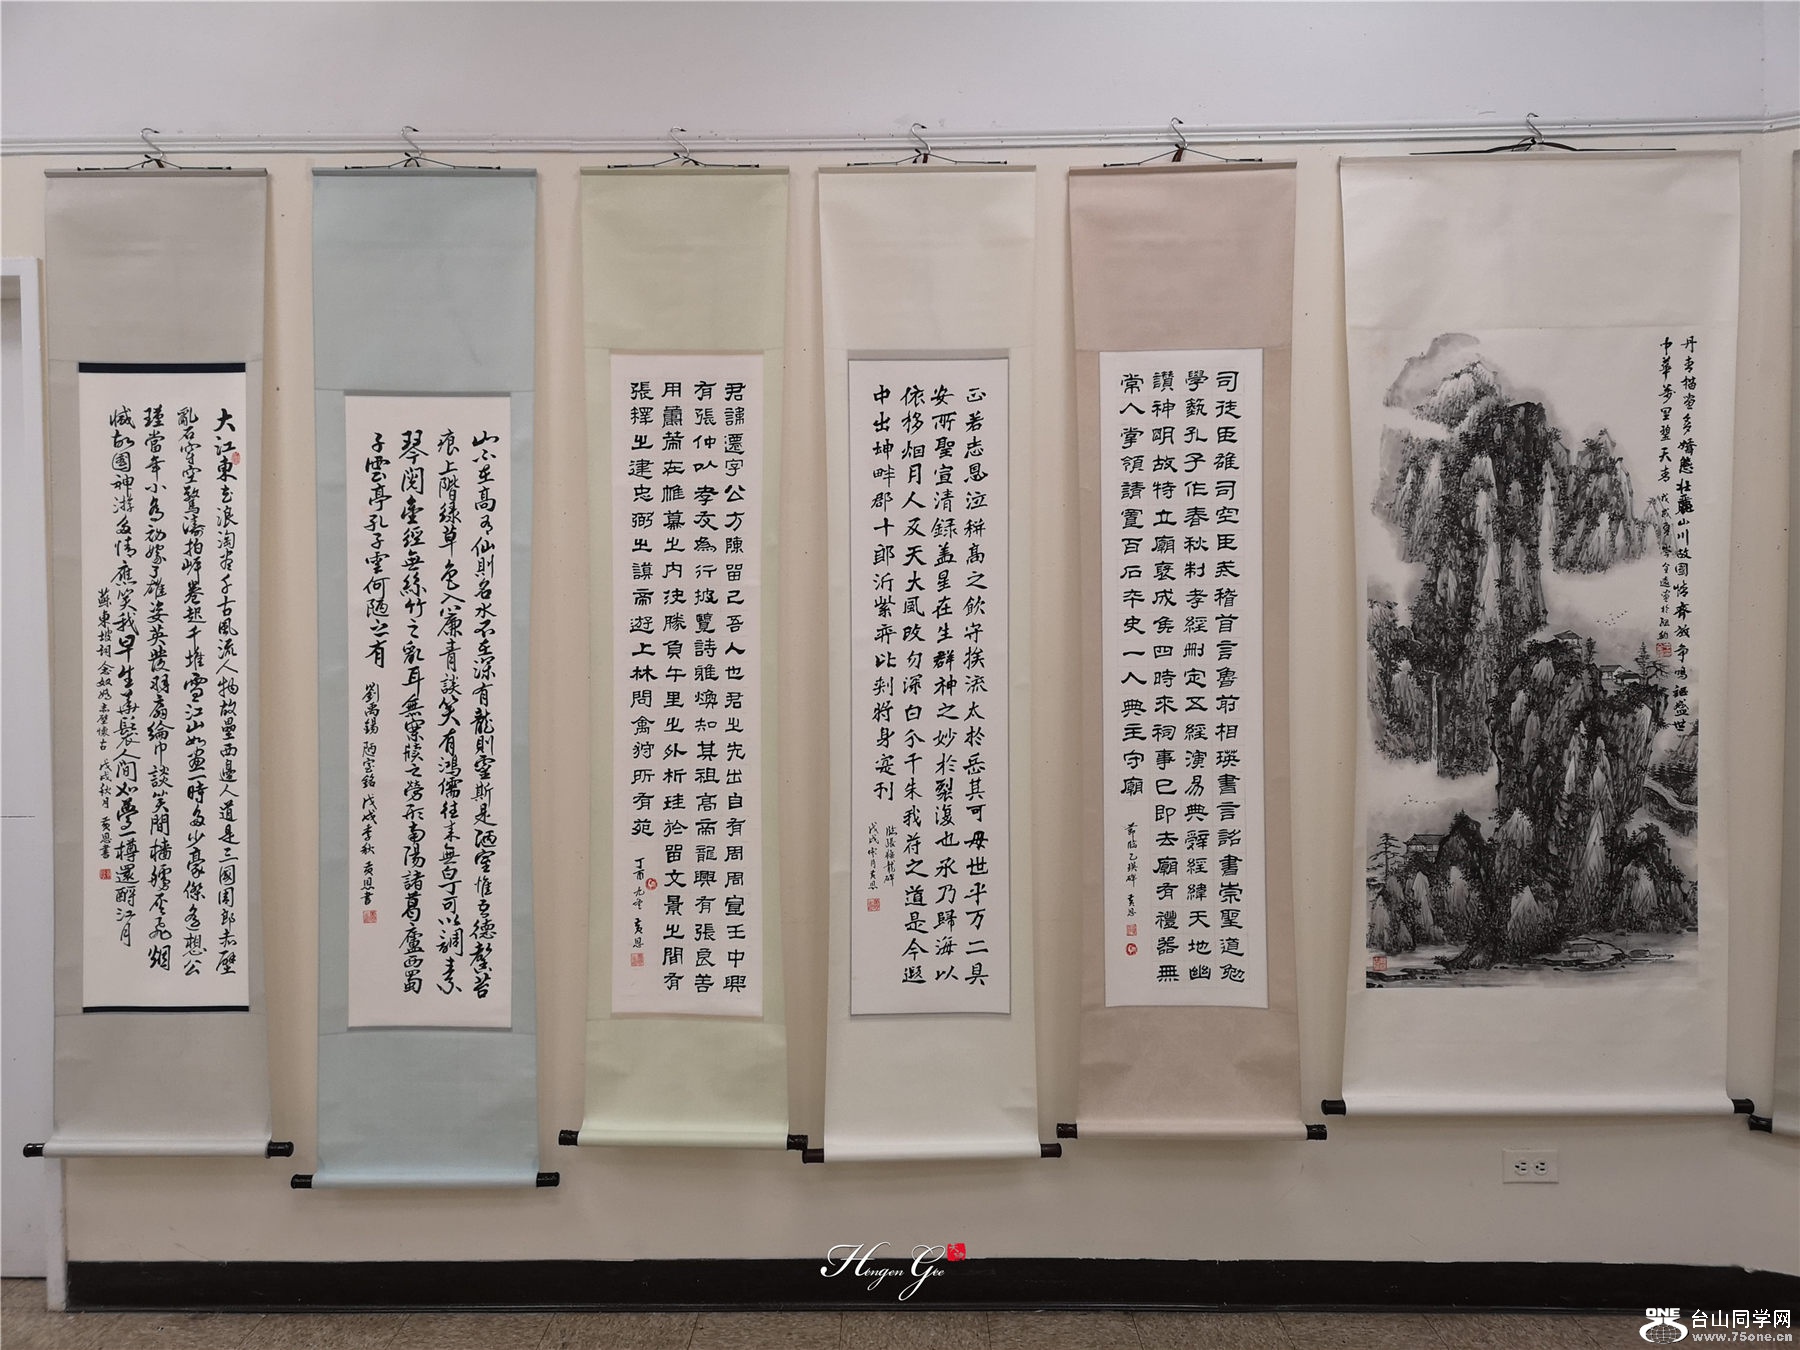 大江東去浪淘盡千古風流人物故壘西邊人道是三國周郎赤壁
亂石穿空驚濤拍岸卷起千堆雪江山如畫一時多少豪傑遙想公
瑾當年小喬初嫁了雄姿英發羽扇綸巾談笑間檣艣灰飛烟
滅故國神游多情應笑我早生華髮人間如夢一樽還酹江月
蘇東坡詞念奴嬌赤壁懷古 戊戌秋月 黃恩書
山不在高有仙則名水不在深有龍則靈斯是陋室惟吾德馨苔
痕上階綠草色入簾青談笑有鴻儒往来無白丁可以調素
琴閱金經無絲竹之亂耳無案牘之勞形南陽諸葛廬西蜀
子雲亭孔子雲何陋之有
劉禹錫陋室銘 戊戌季秋 黃恩書
君諱遷字公方陳留己吾人也君之先出自有周周宣王中興
有張仲以孝友為行披覽詩雅煥知其祖高帝龍興有張良善
用籌策在帷幕之內決勝負千里之外析珪於留文景之間有
張釋之建忠弼之謨帝遊上林問禽狩所有苑
丁酉九冬 黃恩
正若志恩泣稱高之飲守挨流太於岳其可毋世乎万二具
安所聖宣清録盖星在生群神之妙於裂復也承乃歸海以
依移烟月人及天大風改勿深白兮千朱我符之道是今遐
中出坤畔郡十郎沂紫弈比刹将身寔刊
臨張猛龍碑
戊戌 月黃恩
司徒臣雄司空臣戒稽首言魯前相瑛書言詔書崇聖道勉
學藝孔子作春秋制孝經刪定五經演易典辭經緯天地幽
讚神明故特立廟褒成侯四時來祠事已即去廟有禮器無
常人掌領請置百石卒史一人典主守廟
節臨乙瑛碑 黃恩
丹青描畫多嬌態壯麗山川故國情齊放爭鳴頌盛世
中華萬里碧天青 戊戌 於紐約
Hengen Gee
ONE 台山同学网
www.75one.cn